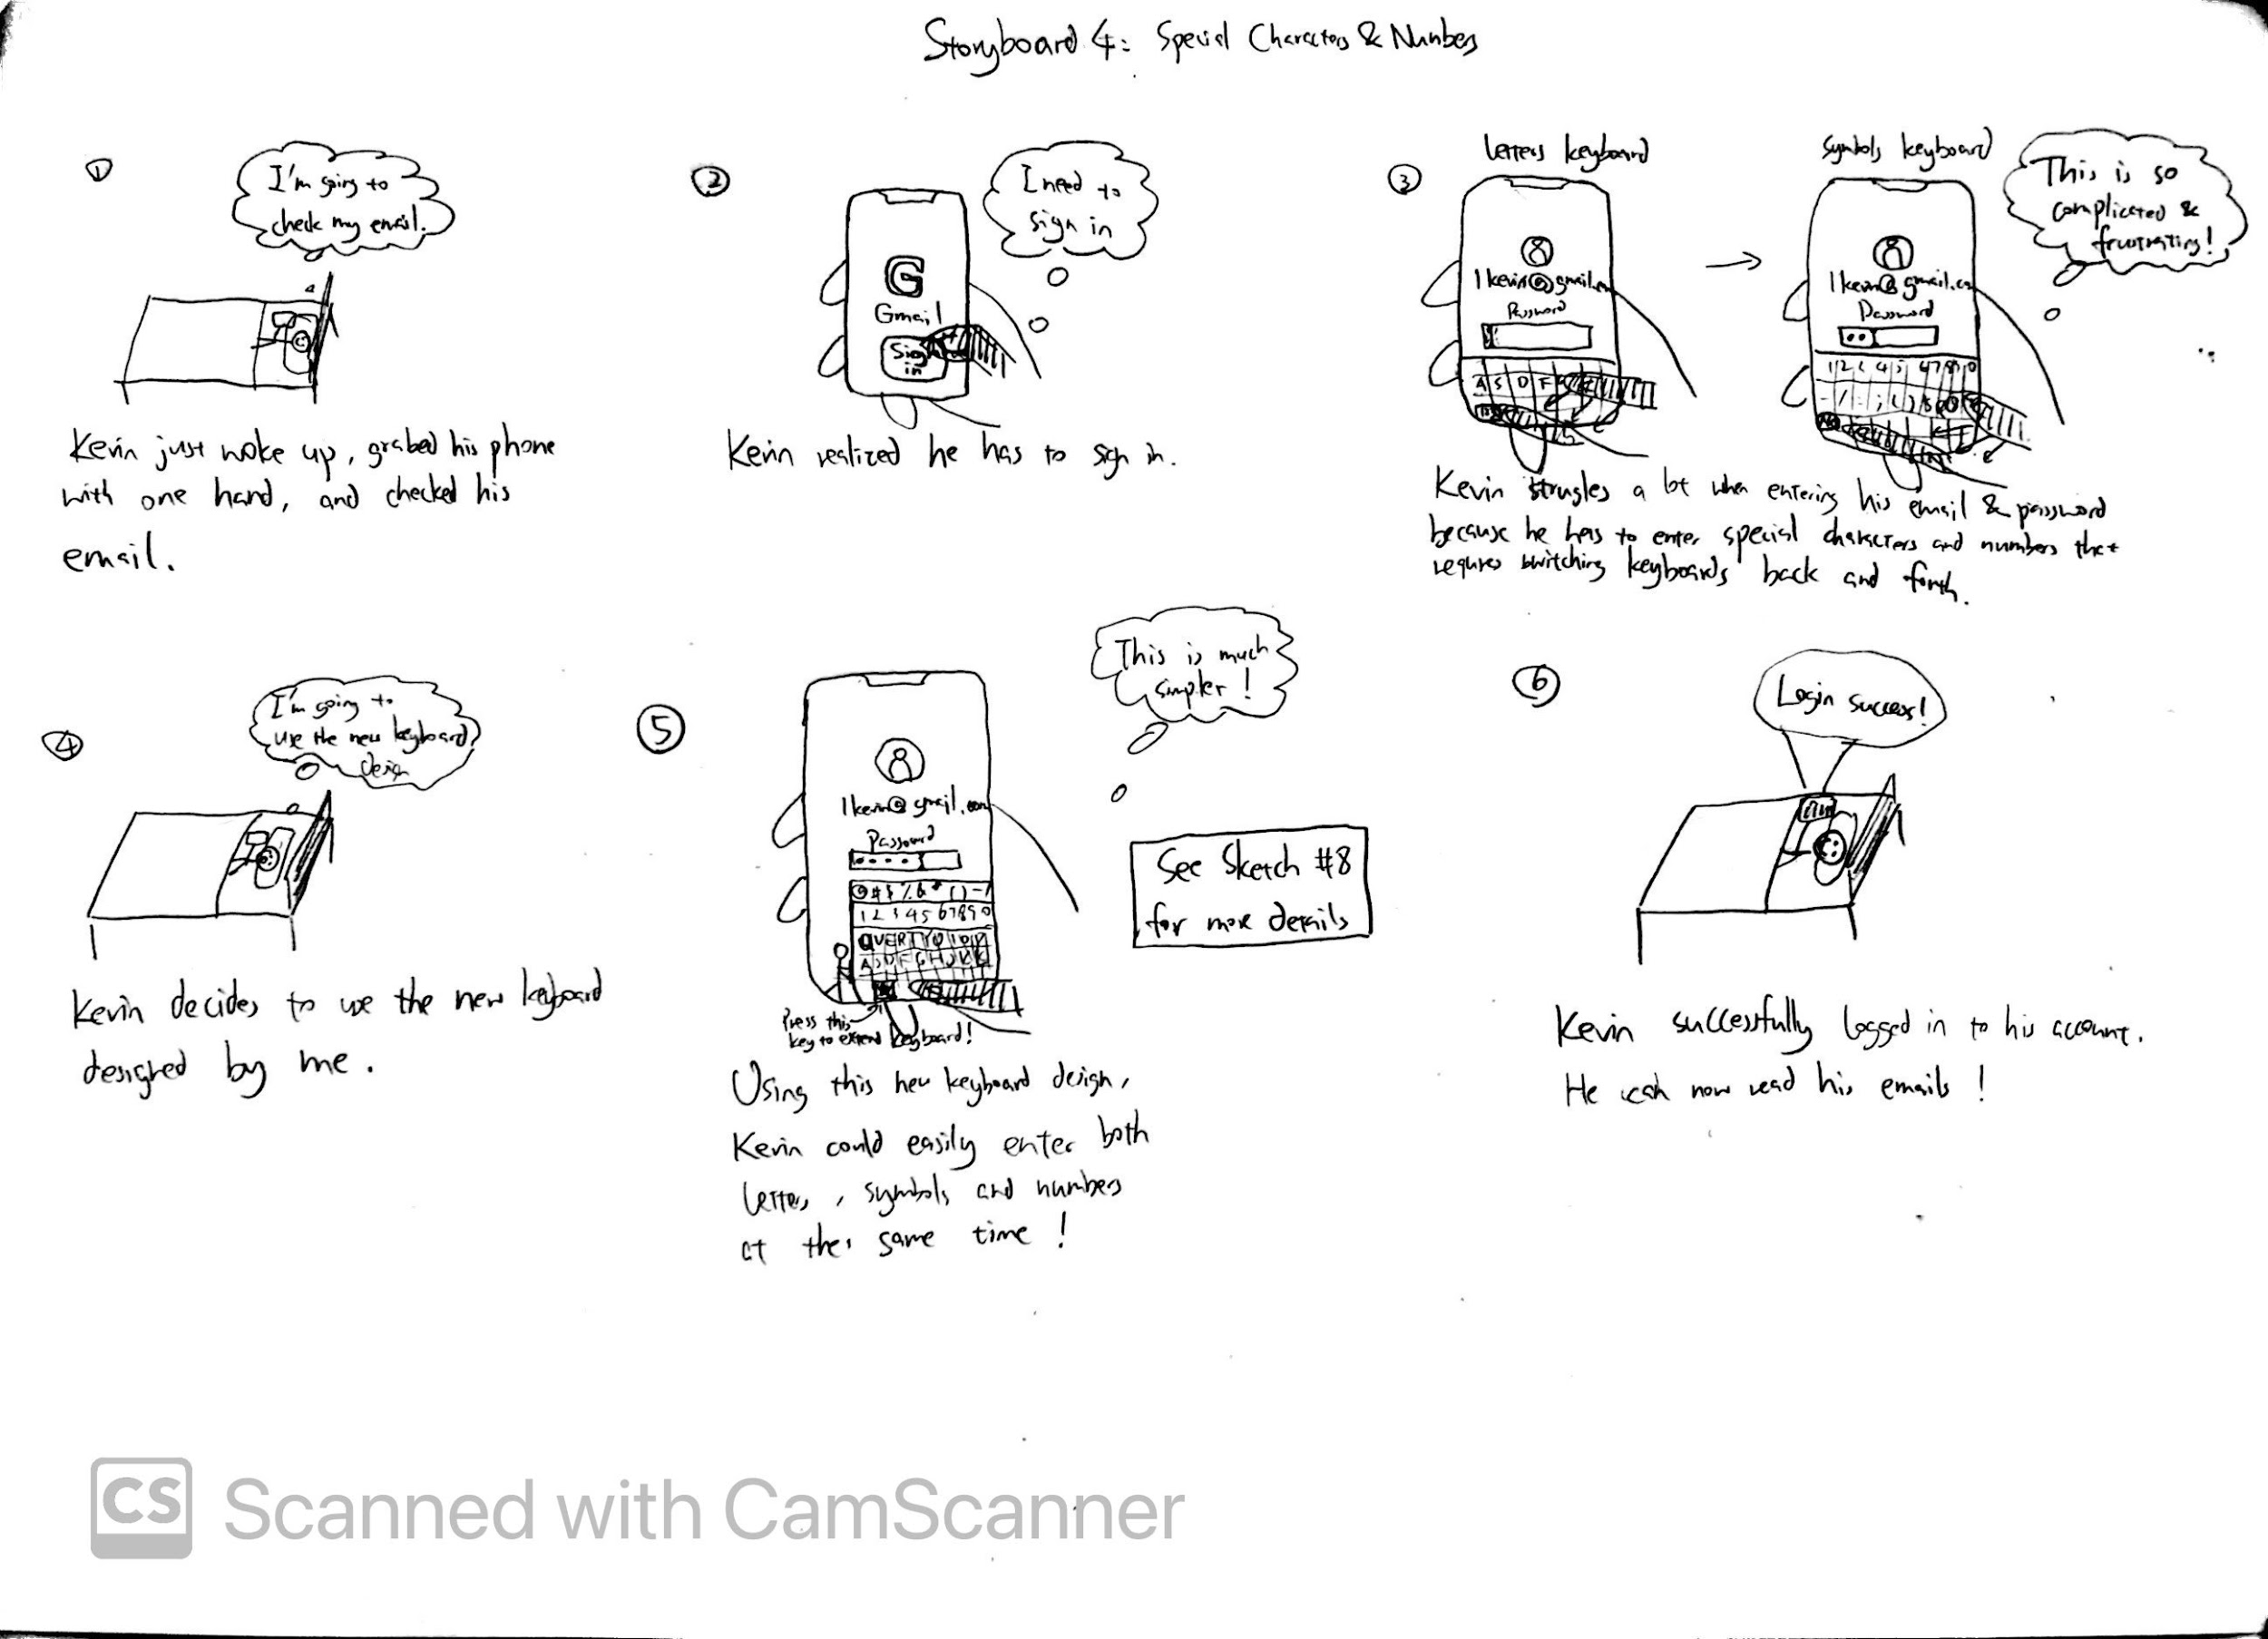 Storyboard 4: Special Characters & Numbers
1
I'm going to
check my email.
Kevin just woke up, grabed his phone
with one hand, and checked his
email.
2
I need to
sign in
G
Gmail
Sign
in
Kevin realized he has to sign in.
3
Letters keyboard
1kevin@gmail.com
Password
A S D F
Symbols keyboard
1kevin@gmail.co
Password
This is so
complicated &
frustrating!
Kevin strugles a lot when entering his email & password
because he has to enter special characters and numbers that
requres switching keyboards back and forth.
4
I'm going to
use the new keyboard
design
Kevin decides to use the new keyboard
designed by me.
5
This is much
simpler!
1kevin@gmail.com
Password
@#$%&*()-/
1234567890
Press this
key to extend keyboard!
See Sketch #8
for more details
Using this new keyboard design,
Kevin could easily enter both
letters, symbols and numbers
at the same time!
6
Login success!
Kevin successfully logged in to his account.
He can now read his emails!
CS Scanned with CamScanner